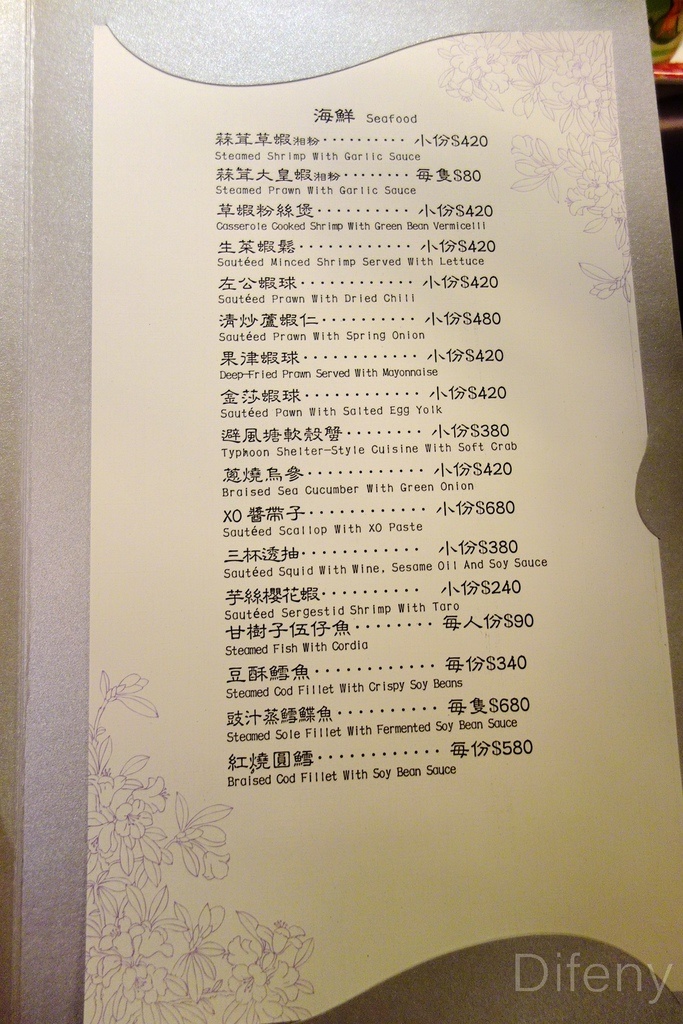 海鮮 Seafood
蒜茸草蝦湘粉·········· 小份$420
Steamed Shrimp With Garlic Sauce
蒜茸大皇蝦湘粉········ 每隻$80
Steamed Prawn With Garlic Sauce
草蝦粉絲煲··········· 小份$420
Casserole Cooked Shrimp With Green Bean Vermicelli
生菜蝦鬆············ 小份$420
Sautéed Minced Shrimp Served With Lettuce
左公蝦球············ 小份$420
Sautéed Prawn With Dried Chili
清炒蘆蝦仁·········· 小份$480
Sautéed Prawn With Spring Onion
果律蝦球············ 小份$420
Deep-Fried Prawn Served With Mayonnaise
金莎蝦球············ 小份$420
Sautéed Pawn With Salted Egg Yolk
避風塘軟殼蟹········ 小份$380
Typhoon Shelter-Style Cuisine With Soft Crab
蔥燒烏參············ 小份$420
Braised Sea Cucumber With Green Onion
XO 醬帶子············ 小份$680
Sautéed Scallop With XO Paste
三杯透抽············ 小份$380
Sautéed Squid With Wine, Sesame Oil And Soy Sauce
芋絲櫻花蝦·········· 小份$240
Sautéed Sergestid Shrimp With Taro
甘樹子伍仔魚········ 每人份$90
Steamed Fish With Cordia
豆酥鱈魚············ 每份$340
Steamed Cod Fillet With Crispy Soy Beans
豉汁蒸鱈鰈魚·········· 每隻$680
Steamed Sole Fillet With Fermented Soy Bean Sauce
紅燒圓鱈············ 每份$580
Braised Cod Fillet With Soy Bean Sauce
Difeny